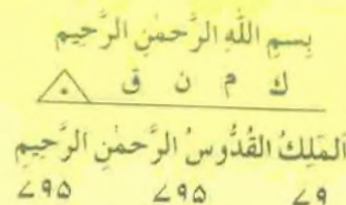 بِسمِ اللهِ الرَّحمٰنِ الرَّحِيمِ
ك م ن ق ۰
اَلمَلِكُ القُدُّوسُ الرَّحمٰنِ الرَّحِيمِ
۷۹ ۷۹۵ ۷۹۵